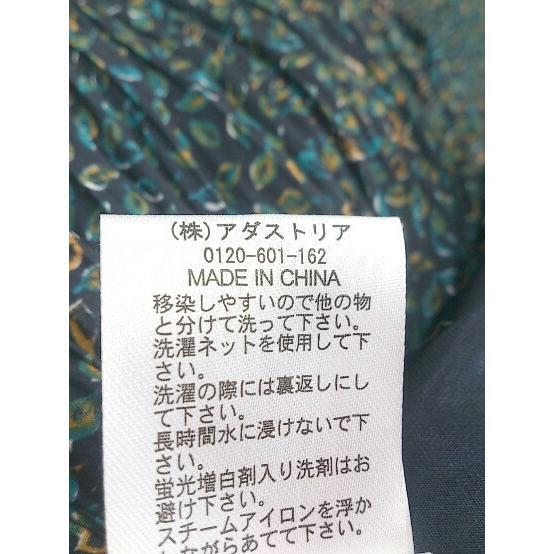 (株)アダストリア
0120-601-162
MADE IN CHINA
移染しやすいので他の物
と分けて洗って下さい。
洗濯ネットを使用して下
さい。
洗濯の際には裏返しにし
て下さい。
長時間水に浸けないで下
さい。
蛍光増白剤入り洗剤はお
避け下さい。
スチームアイロンを浮か
しながらあてて下さい。